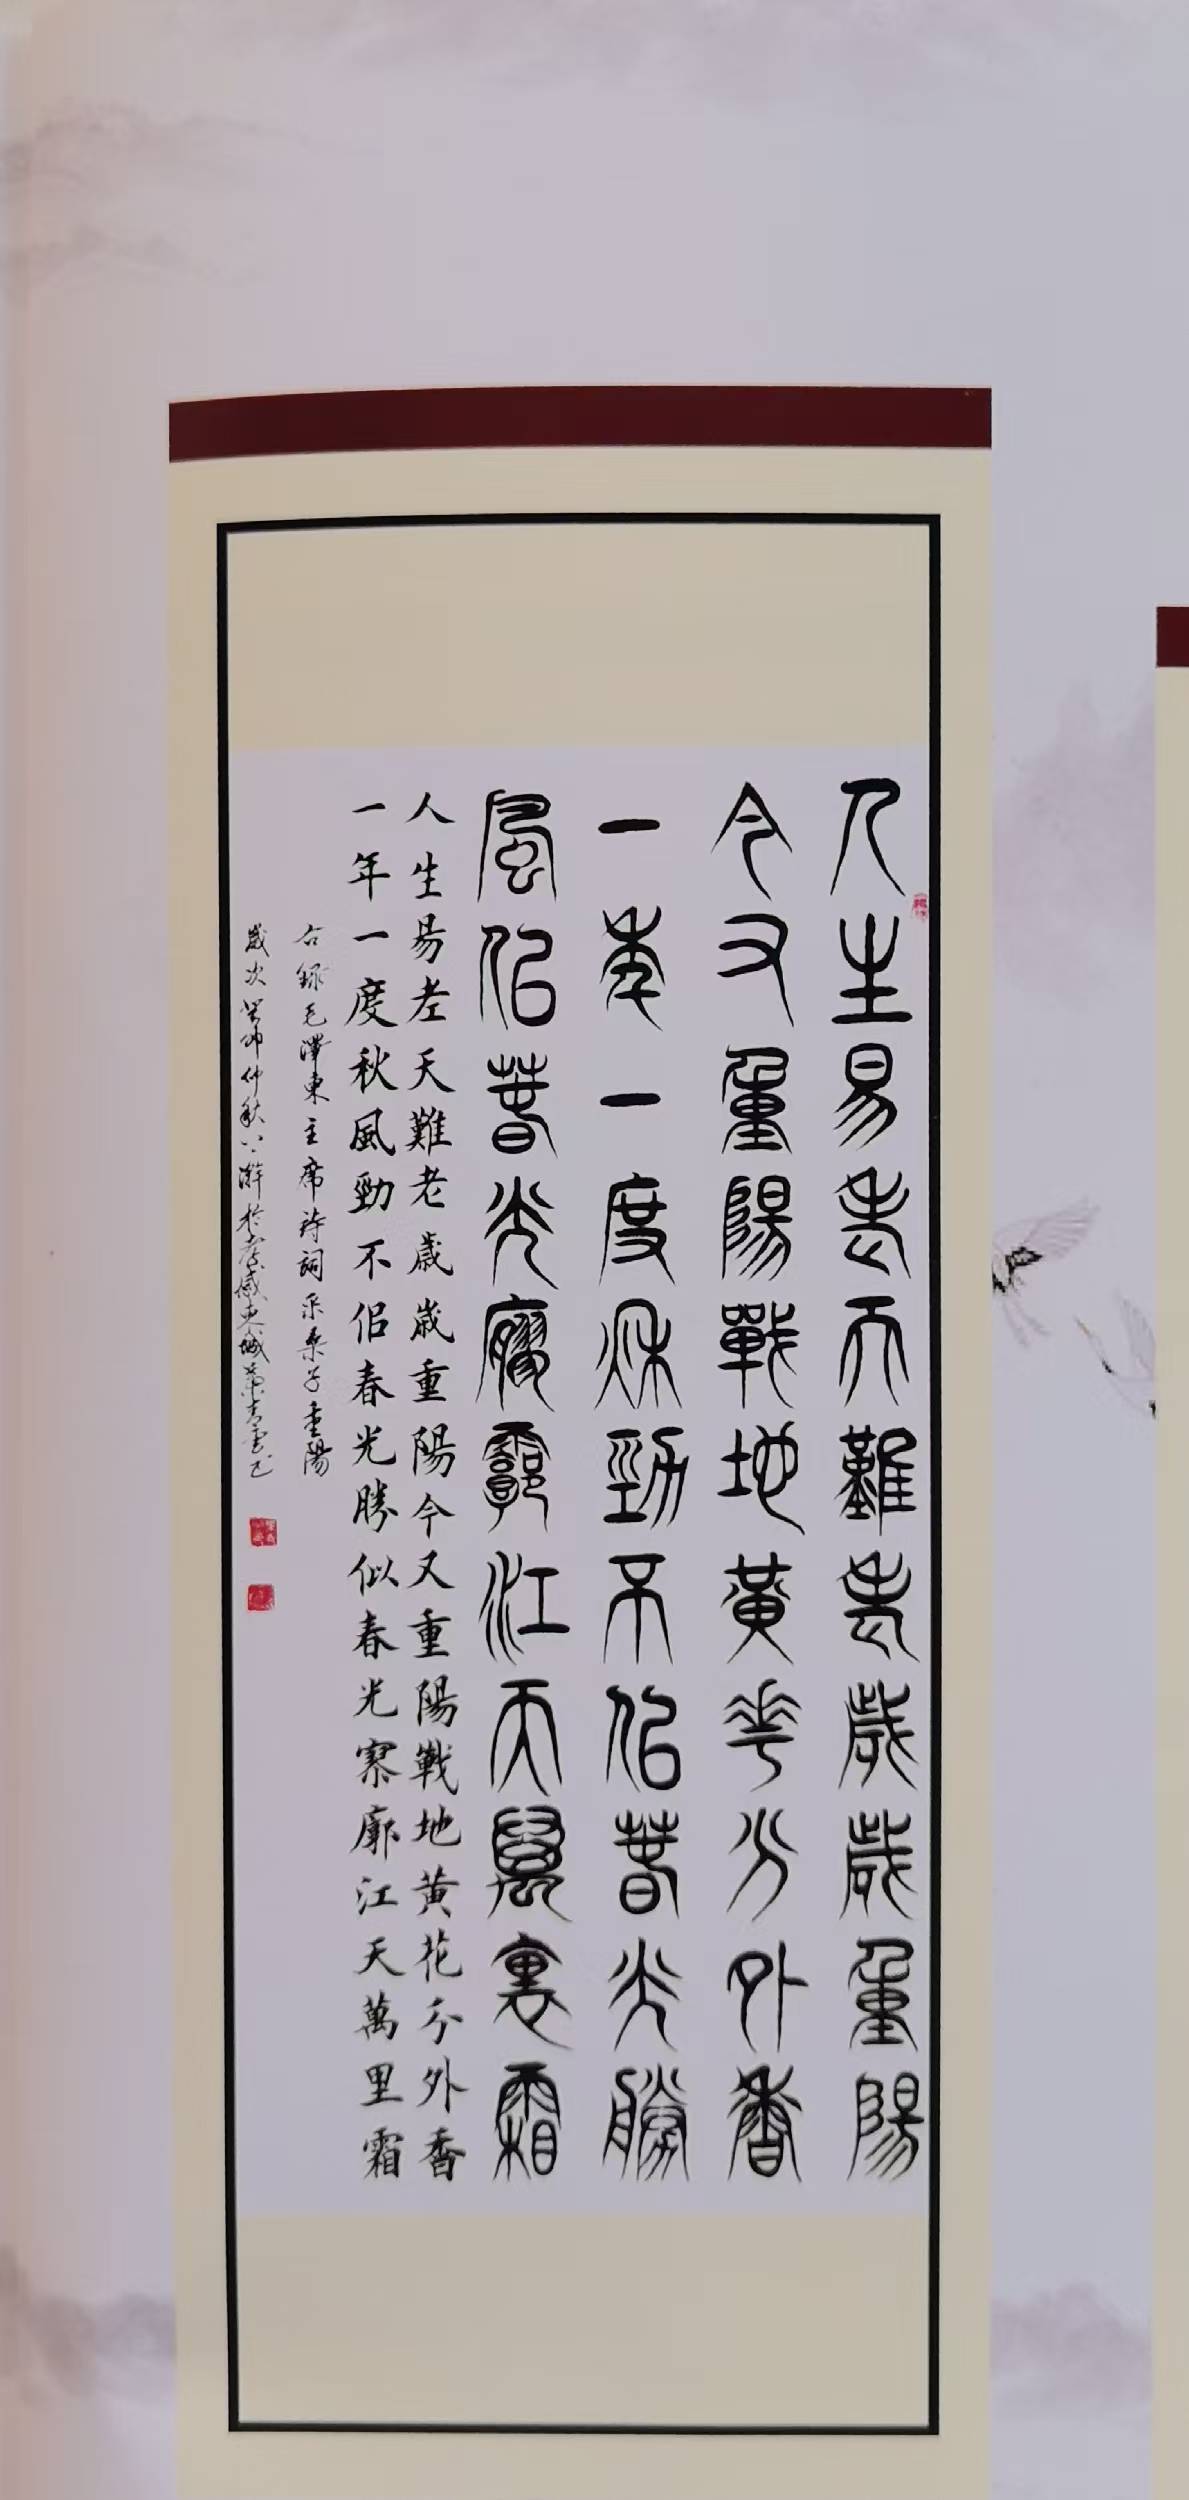 人生易老天難老歲歲重陽
今又重陽戰地黃花分外香
一年一度秋勁不佀春光勝
風佀春光寥廓江天萬里霜
人生易老天難老歲歲重陽今又重陽戰地黃花分外香
一年一度秋風勁不佀春光勝似春光寥廓江天萬里霜
右録毛澤東主席詩詞采桑子重陽
歲次癸卯仲秋於孝感東城